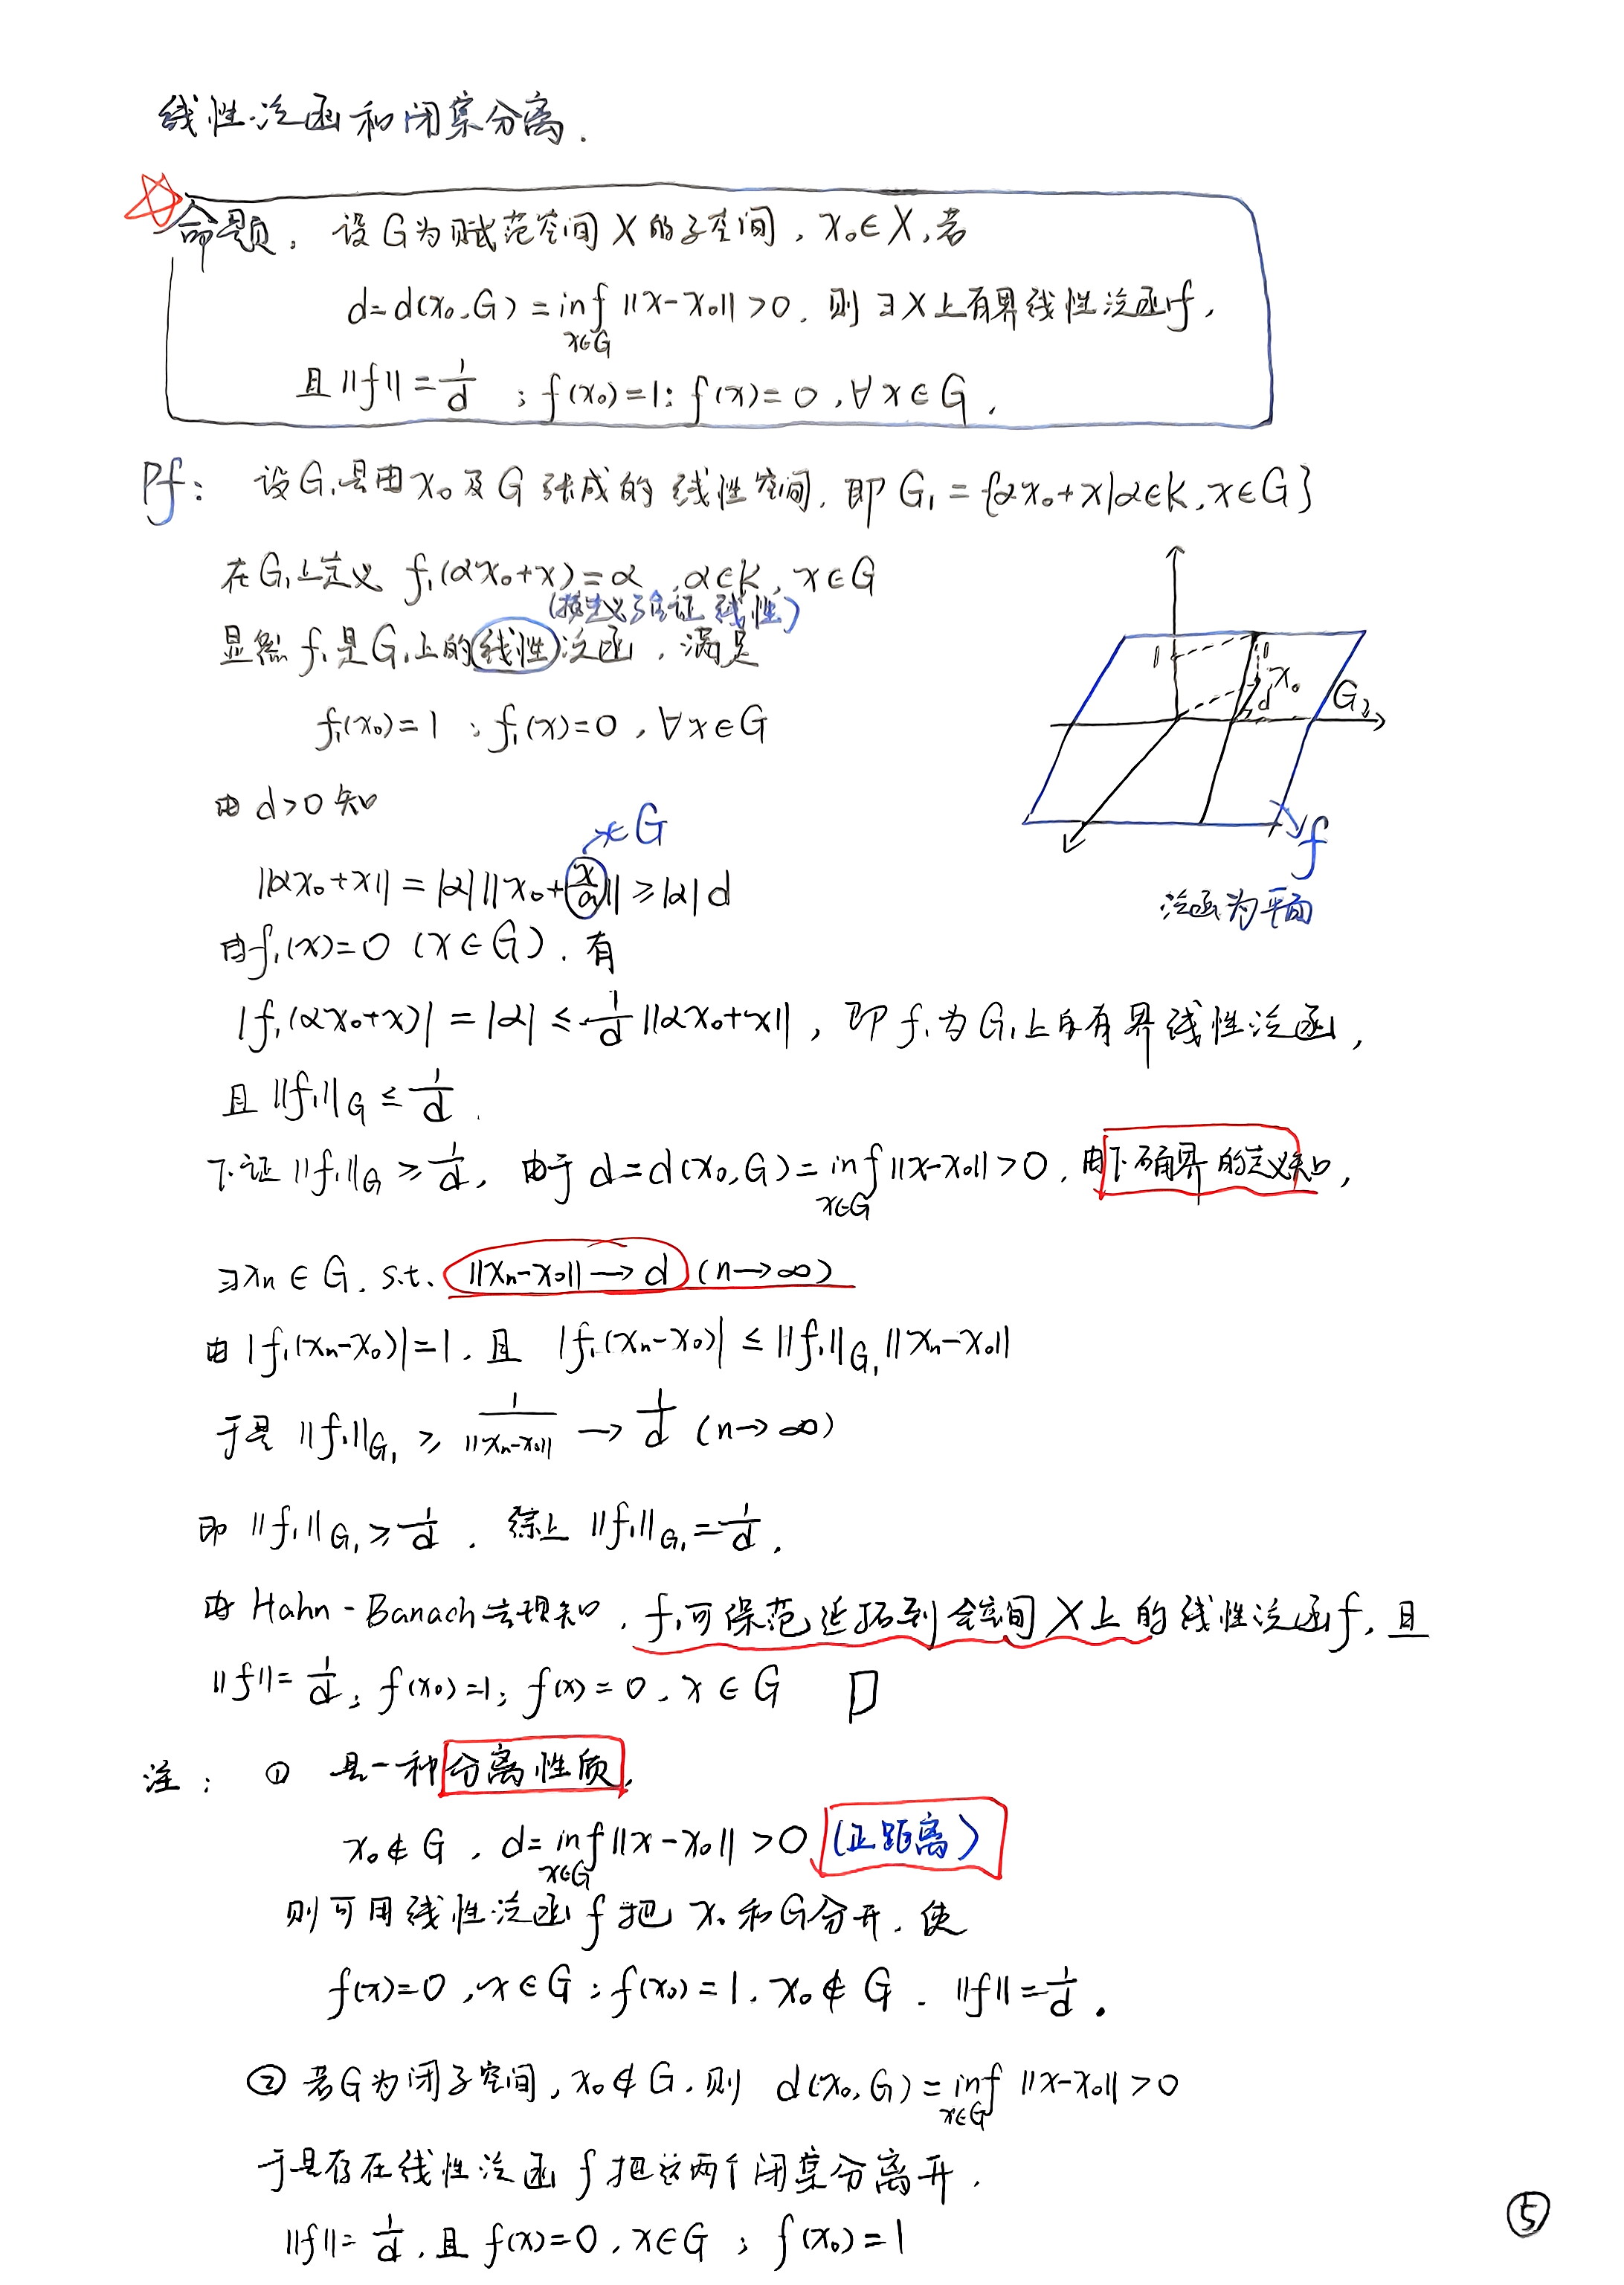 线性泛函和闭集分离.
命题. 设G为赋范空间X的子空间, x₀∈X, 若
d=d(x₀,G)=inf ||x-x₀||>0. 则∃X上有界线性泛函f,
x∈G
且||f||=1/d ; f(x₀)=1; f(x)=0, ∀x∈G.
Pf: 设G₁是由x₀及G张成的线性空间, 即G₁={αx₀+x|α∈K, x∈G}
在G₁上定义 f₁(αx₀+x)=α, α∈K, x∈G
(按定义可验证线性)
显然f₁是G₁上的线性泛函, 满足
f₁(x₀)=1 ; f₁(x)=0, ∀x∈G
1
x₀
d
G₂
f
泛函为平面
由d>0知
∈G
||αx₀+x||=|α| ||x₀+x/α||≥|α|d
由f₁(x)=0 (x∈G). 有
|f₁(αx₀+x)|=|α|≤1/d ||αx₀+x||, 即f₁为G₁上的有界线性泛函,
且||f₁||G≤1/d.
下证||f₁||G≥1/d, 由于d=d(x₀,G)=inf ||x-x₀||>0. 由下确界的定义知,
x∈G
∃xₙ∈G. s.t. ||xₙ-x₀||→d (n→∞)
由|f₁(xₙ-x₀)|=1. 且 |f₁(xₙ-x₀)|≤||f₁||G₁ ||xₙ-x₀||
于是 ||f₁||G₁≥1/||xₙ-x₀||→1/d (n→∞)
即||f₁||G₁≥1/d. 综上||f₁||G₁=1/d.
由Hahn-Banach定理知, f₁可保范延拓到全空间X上的线性泛函f, 且
||f||=1/d; f(x₀)=1; f(x)=0, x∈G □
注: ① 是一种分离性质,
x₀∉G, d=inf ||x-x₀||>0 (正距离)
x∈G
则可用线性泛函f把x₀和G分开, 使
f(x)=0, x∈G; f(x₀)=1, x₀∉G. ||f||=1/d.
② 若G为闭子空间, x₀∉G, 则 d(x₀,G)=inf ||x-x₀||>0
x∈G
于是存在线性泛函f把这两个闭集分离开.
||f||=1/d, 且f(x)=0, x∈G; f(x₀)=1
⑤